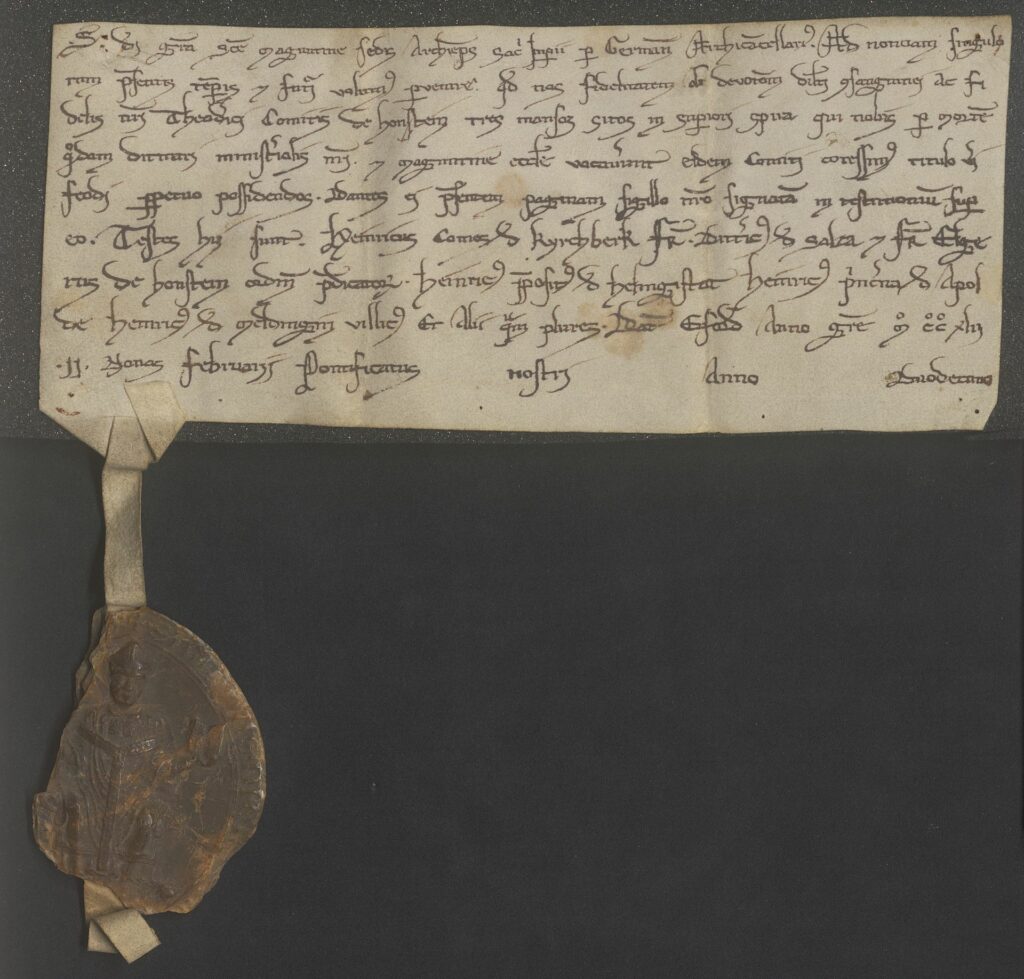 S. di gra sce Maguntine sedis Archieps sac Impii p Germam Archicacellari9. Ad noticiam singulo
rum psentis tepis & futi volum9 pervenire. qd nos fidelitatem ac devotoem dilti 9sanguinei ac fi
delis nri Theodici Comitis de honstein tres mansos sitos in supiori spira qui nobis p morte
qdam ministialis nri. & Maguntine eccle vacavunt eidem Comiti cocessim9 titulo
feodi ppetuo possidendos. Dantes psentem paginam sigillo nro signata in testimonium sup
eo. Testes hij sunt. Heinricus Comes d Kyrchberk fr. Ditic9 d Salza & fr Elge
rus de honstein ordinis pdicator. Heinric9 pposit9 d heligistat heinric9 pincna d Apol
de heinric9 d Meldingin villic9 Et alii qm plures. Dat Erford Anno gre M CC XLII
.II. Nonas februarij Pontificatus nostri Anno Duodecimo